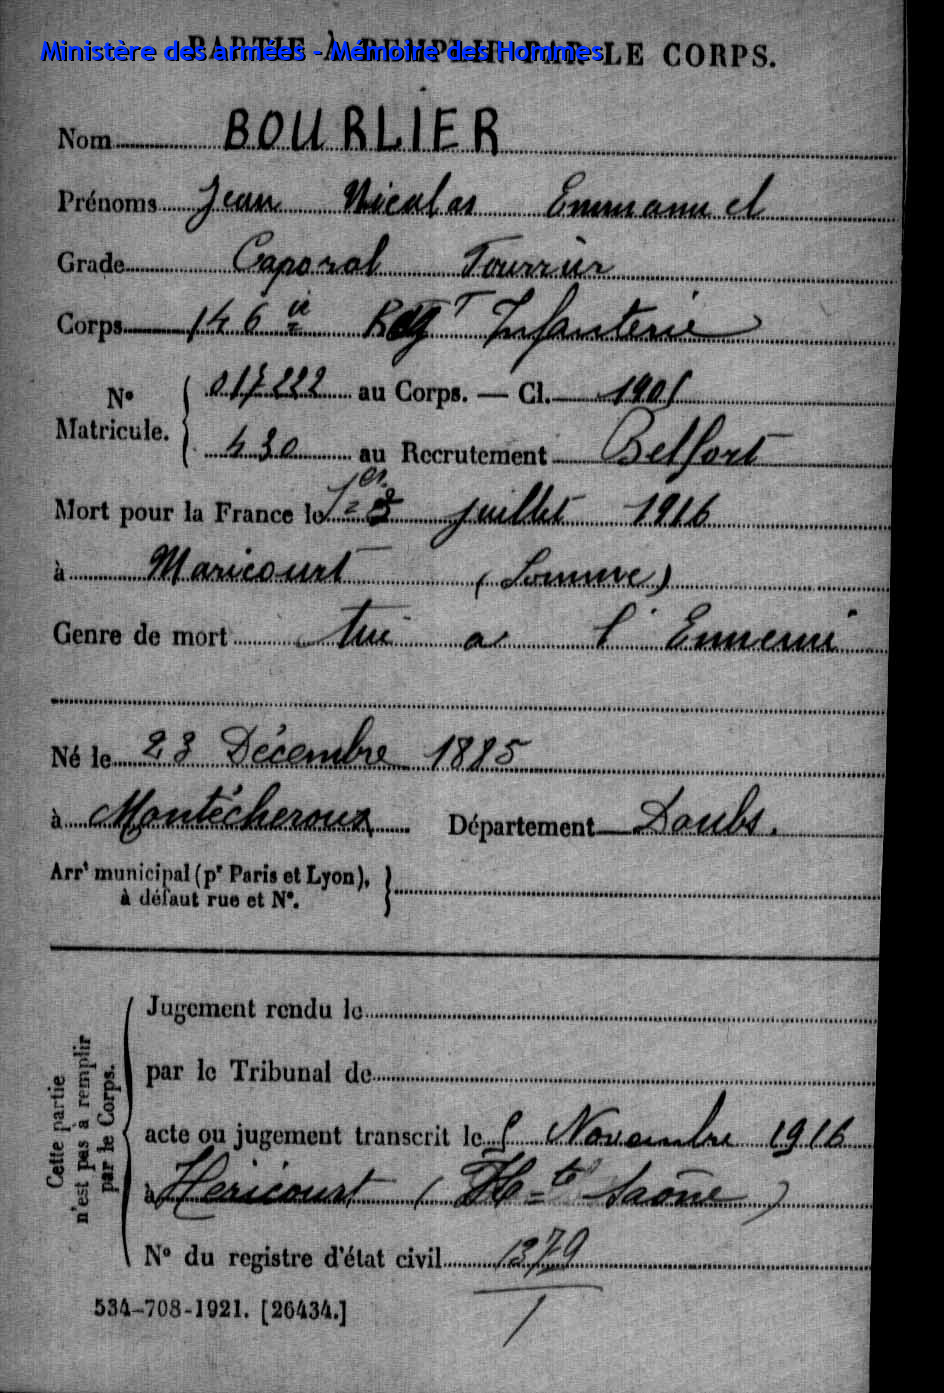 PARTIE À REMPLIR PAR LE CORPS.
Ministère des armées - Mémoire des Hommes
Nom BOURLIER
Prénoms Jean Nicolas Emmanuel
Grade Caporal Fourrier
Corps 146e Regt Infanterie
No Matricule. { 017222 au Corps. — Cl. 1905
430 au Recrutement Belfort
Mort pour la France le juillet 1916
à Maricourt (Somme)
Genre de mort tué à l'Ennemi
Né le 23 Décembre 1885
à Montécheroux Département Doubs.
Arrt municipal (pr Paris et Lyon),
à défaut rue et No.
Cette partie
n'est pas à remplir
par le Corps.
Jugement rendu le
par le Tribunal de
acte ou jugement transcrit le Novembre 1916
à Héricourt (Hte Saône)
No du registre d'état civil 1379
534-708-1921. [26434.]